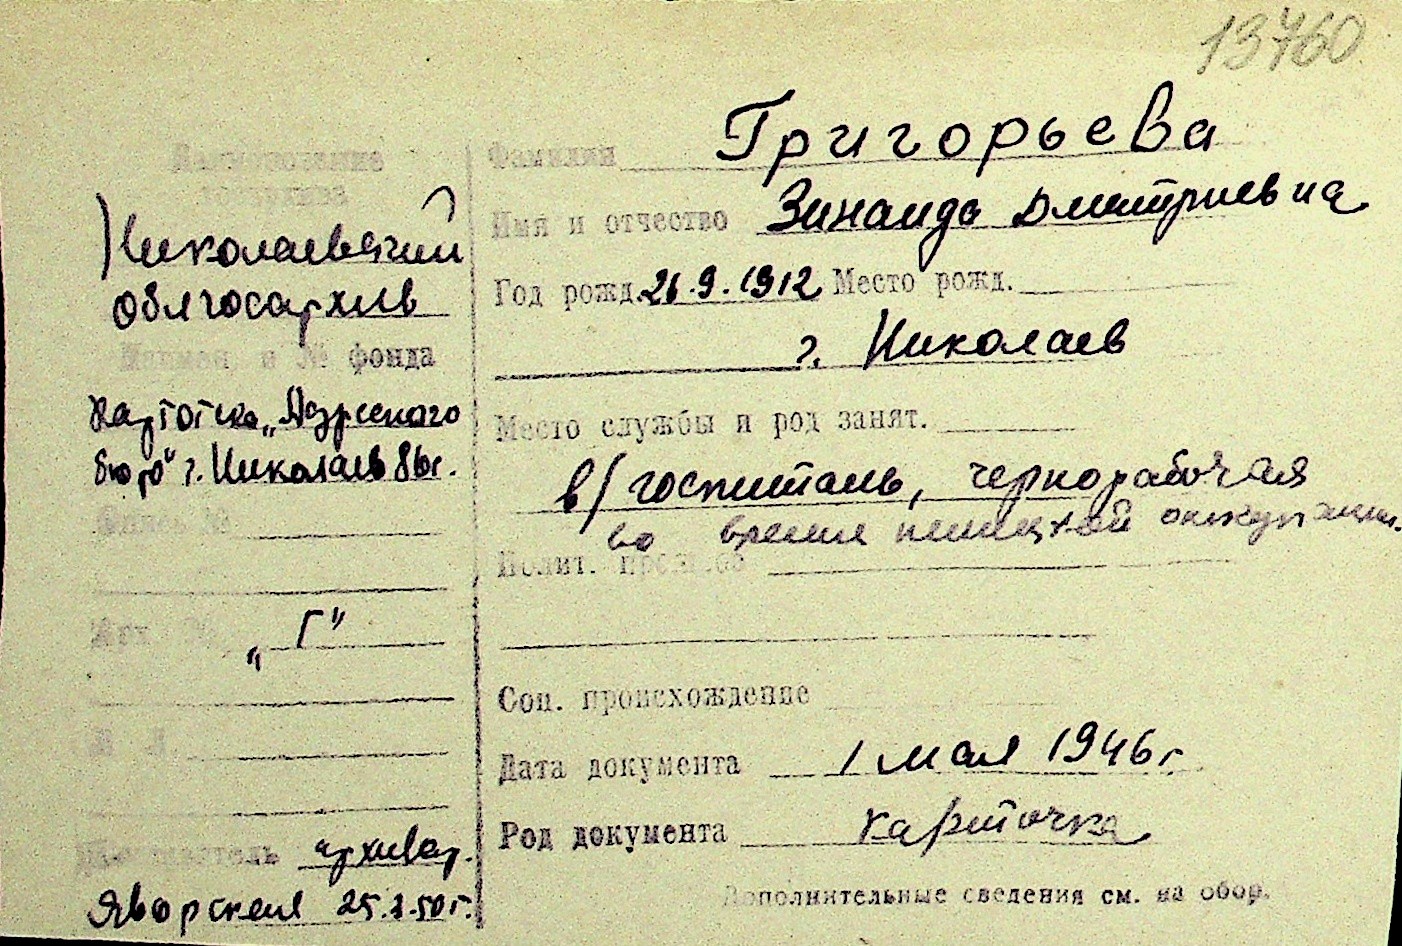 13760
Наименование
госархива
Николаевский
Облгосархив
Наимен и № фонда
Картотека „Адресного
бюро" г. Николаев
Опись №
„Г"
архивар.
Яворская 25.2.50 г.
Фамилия Григорьева
Имя и отчество Зинаида Дмитриевна
Год рожд. 26.9.1912 Место рожд.
г. Николаев
Место службы и род занят.
в/госпиталь, чернорабочая
во время немецкой оккупации.
Полит.
Соц. происхождение
Дата документа 1 мая 1946 г
Род документа карточка
Дополнительные сведения см. на обор.